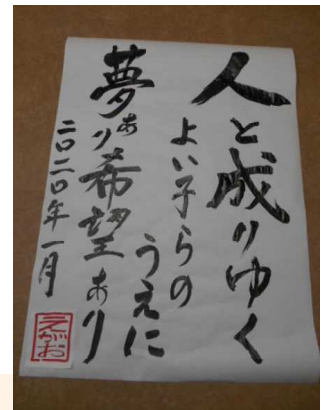 人と成りゆく
よい子らの
うえに
夢あり希望あり
二〇二〇年一月
えがお